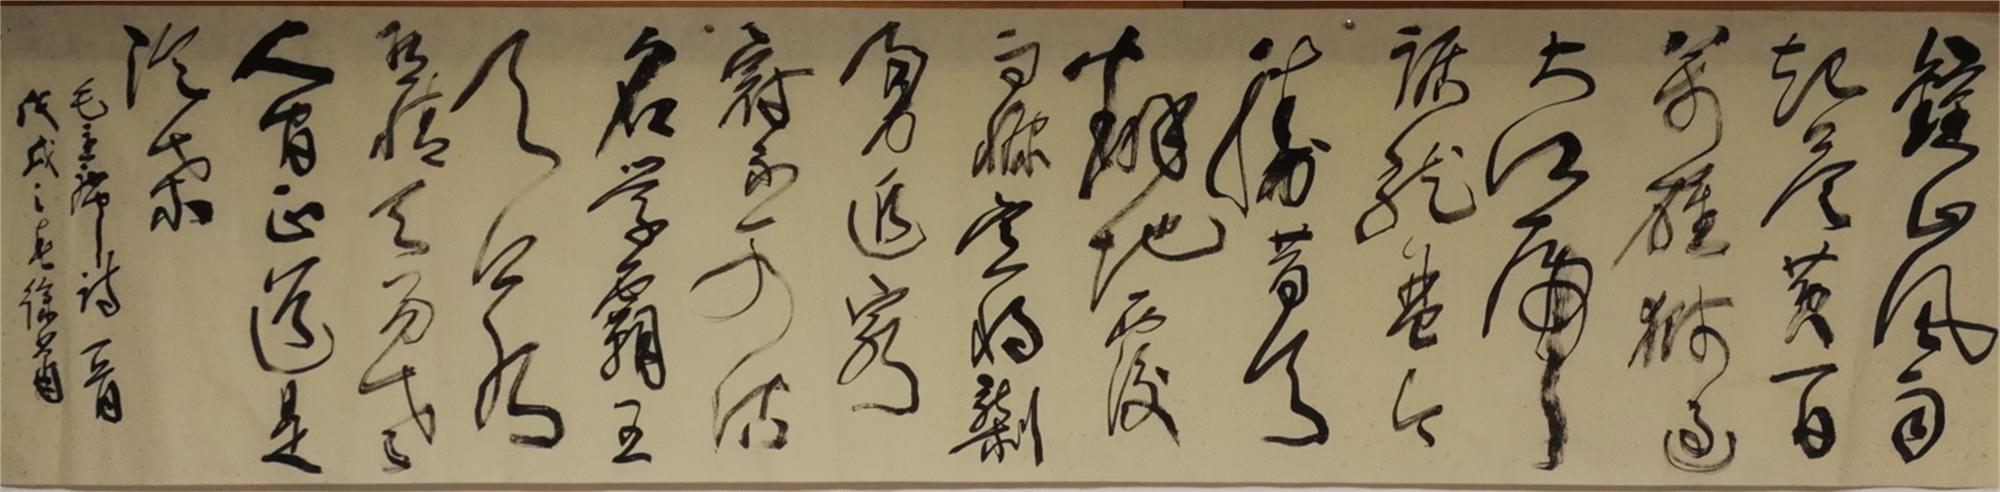 鍾山風雨
起蒼黄百
萬雄師過
大江虎
踞龍盤今
勝昔天
翻地覆
而慷宜將剩
勇追窮
寇不可沽
名學霸王
天若有
情天亦老
人间正道是
滄桑
毛主席詩一首
戊戌之春徐